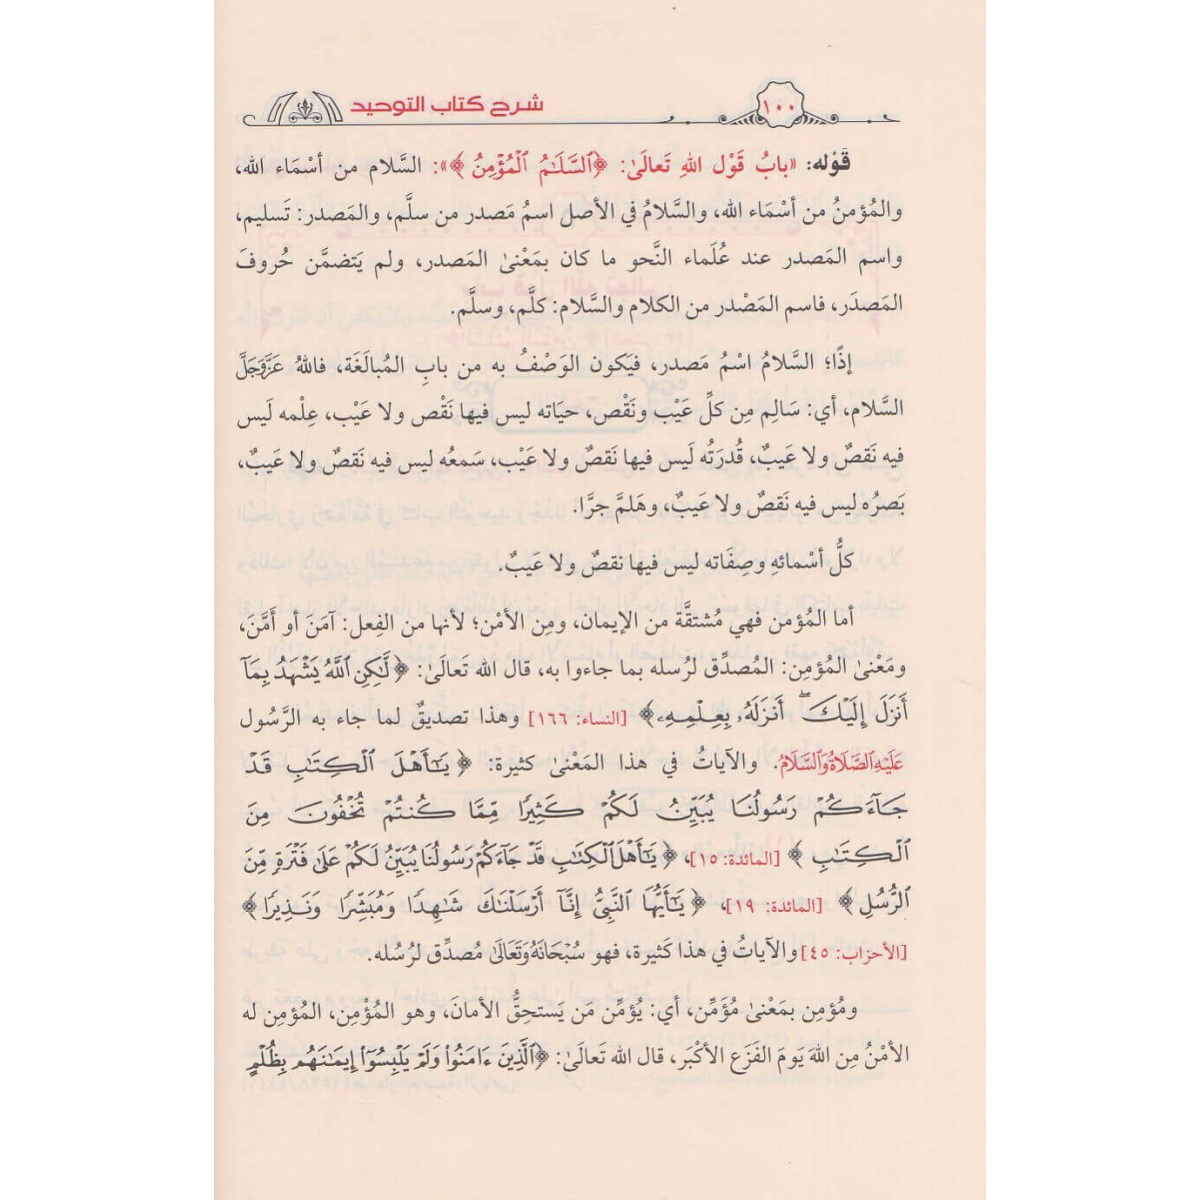 ١٠٠
شرح كتاب التوحيد
قَوْله: «بابُ قَوْل اللهِ تَعالَىٰ: ﴿ٱلسَّلَٰمُ ٱلْمُؤْمِنُ﴾»: السَّلام من أسْمَاء الله،
والمُؤمنُ من أسْمَاء الله، والسَّلامُ في الأصل اسمُ مَصدر من سلَّم، والمَصدر: تَسليم،
واسم المَصدر عند عُلَماء النَّحو ما كان بمَعْنىٰ المَصدر، ولم يَتضمَّن حُروفَ
المَصدَر، فاسم المَصْدر من الكلام والسَّلام: كلَّم، وسلَّم.
إذًا؛ السَّلامُ اسْمُ مَصدر، فيَكون الوَصْفُ به من بابِ المُبالَغَة، فاللهُ عَزَّوَجَلَّ
السَّلام، أي: سَالِم مِن كلِّ عَيْب ونَقْص، حيَاته ليس فيها نَقْص ولا عَيْب، عِلْمه لَيس
فيه نَقصٌ ولا عَيبٌ، قُدرَتُه لَيس فيها نَقصٌ ولا عَيْب، سَمعُه ليس فيه نَقصٌ ولا عَيبٌ،
بَصرُه ليس فيه نَقصٌ ولا عَيبٌ، وهَلمَّ جرَّا.
كلُّ أسْمائهِ وصِفَاته ليس فيها نقصٌ ولا عَيبٌ.
أما المُؤمن فهي مُشتقَّة من الإيمان، ومِن الأمْن؛ لأنها من الفِعل: آمَنَ أو أمَّنَ،
ومَعْنىٰ المُؤمِن: المُصدِّق لرُسله بما جاءوا به، قال الله تَعالَىٰ: ﴿لَّٰكِنِ ٱللَّهُ يَشْهَدُ بِمَآ
أَنزَلَ إِلَيْكَ ۖ أَنزَلَهُۥ بِعِلْمِهِۦ﴾ [النساء: ١٦٦] وهذا تصديقٌ لما جاء به الرَّسُول
عَلَيْهِ الصَّلَاةُ وَالسَّلَامُ. والآياتُ في هذا المَعْنىٰ كثيرة: ﴿يَٰٓأَهْلَ ٱلْكِتَٰبِ قَدْ
جَآءَكُمْ رَسُولُنَا يُبَيِّنُ لَكُمْ كَثِيرًا مِّمَّا كُنتُمْ تُخْفُونَ مِنَ
ٱلْكِتَٰبِ﴾ [المائدة: ١٥]، ﴿يَٰٓأَهْلَ ٱلْكِتَٰبِ قَدْ جَآءَكُمْ رَسُولُنَا يُبَيِّنُ لَكُمْ عَلَىٰ فَتْرَةٍ مِّنَ
ٱلرُّسُلِ﴾ [المائدة: ١٩]، ﴿يَٰٓأَيُّهَا ٱلنَّبِىُّ إِنَّآ أَرْسَلْنَٰكَ شَٰهِدًا وَمُبَشِّرًا وَنَذِيرًا﴾
[الأحزاب: ٤٥] والآياتُ في هذا كَثيرة، فهو سُبْحَانَهُ وَتَعَالَىٰ مُصدِّق لرُسُله.
ومُؤمِن بمَعْنىٰ مُؤَمِّن، أي: يُؤمِّن مَن يَستحِقُّ الأمانَ، وهو المُؤْمِن، المُؤمِن له
الأمْنُ مِن اللهَ يَومَ الفَزَع الأكْبَر، قال الله تَعالَىٰ: ﴿ٱلَّذِينَ ءَامَنُوا۟ وَلَمْ يَلْبِسُوٓا۟ إِيمَٰنَهُم بِظُلْمٍ